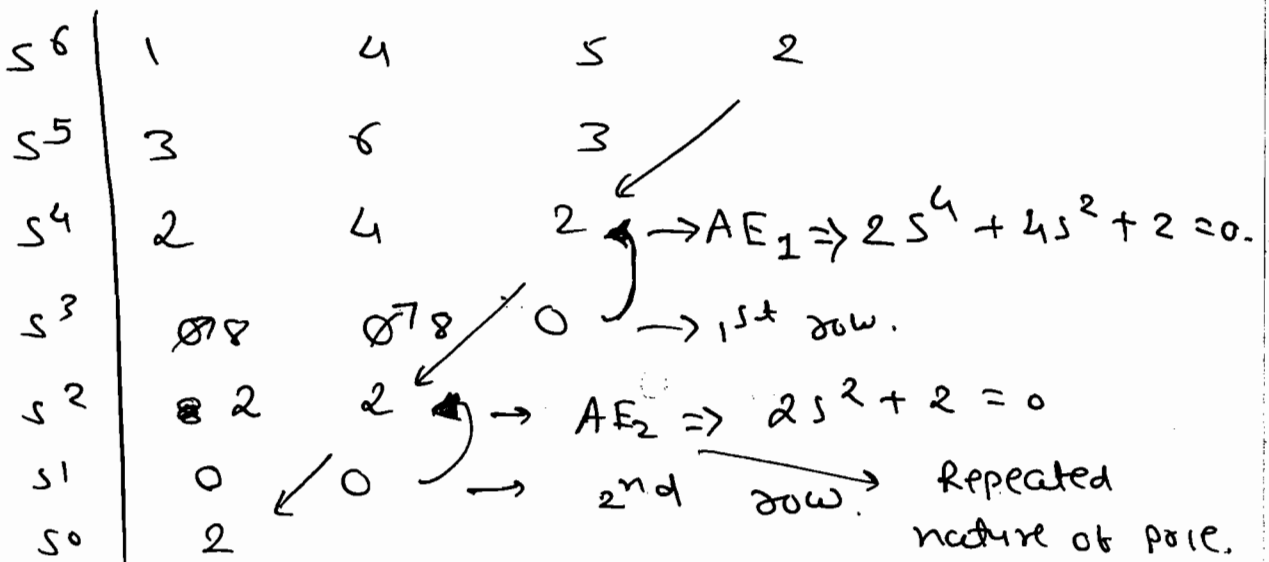 s⁶ | 1 4 5 2
s⁵ | 3 6 3
s⁴ | 2 4 2 → AE₁ ⇒ 2s⁴ + 4s² + 2 = 0.
s³ | 0→8 0→8 0 → 1st row.
s² | 2 2 → AE₂ ⇒ 2s² + 2 = 0
s¹ | 0 0 → 2nd row. Repeated
s⁰ | 2 nature of pole.